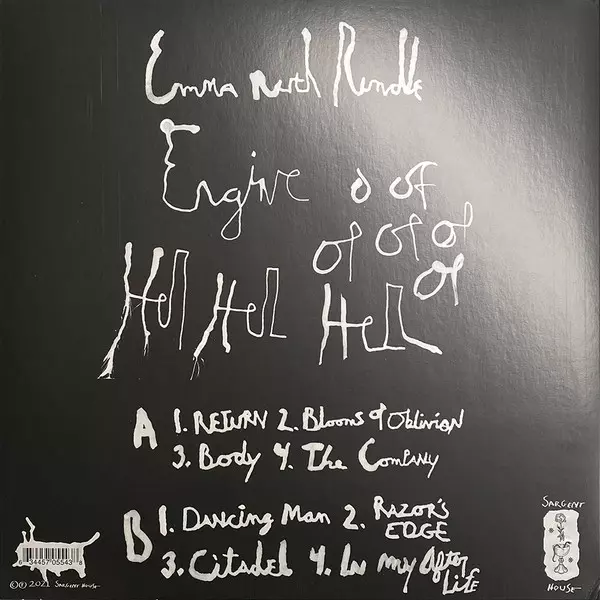 Emma Ruth Rundle
Engine o of
of of of
Hel Hel Hell of
A 1. RETURN 2. Blooms of Oblivion
3. Body 4. The Company
B 1. Dancing Man 2. RAZOR'S EDGE
3. Citadel 4. In my After Life
6 34457 05543 8
©℗ 2021 SARGENT HOUSE
SARGENT
HOUSE